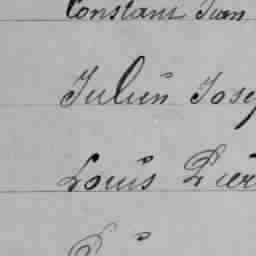 Constant Jean
Julien Jose
Louis Pier